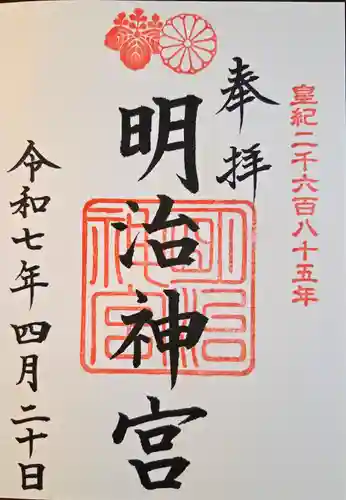 皇紀二千六百八十五年
奉拝
明治神宮
明治神宮
令和七年四月二十日